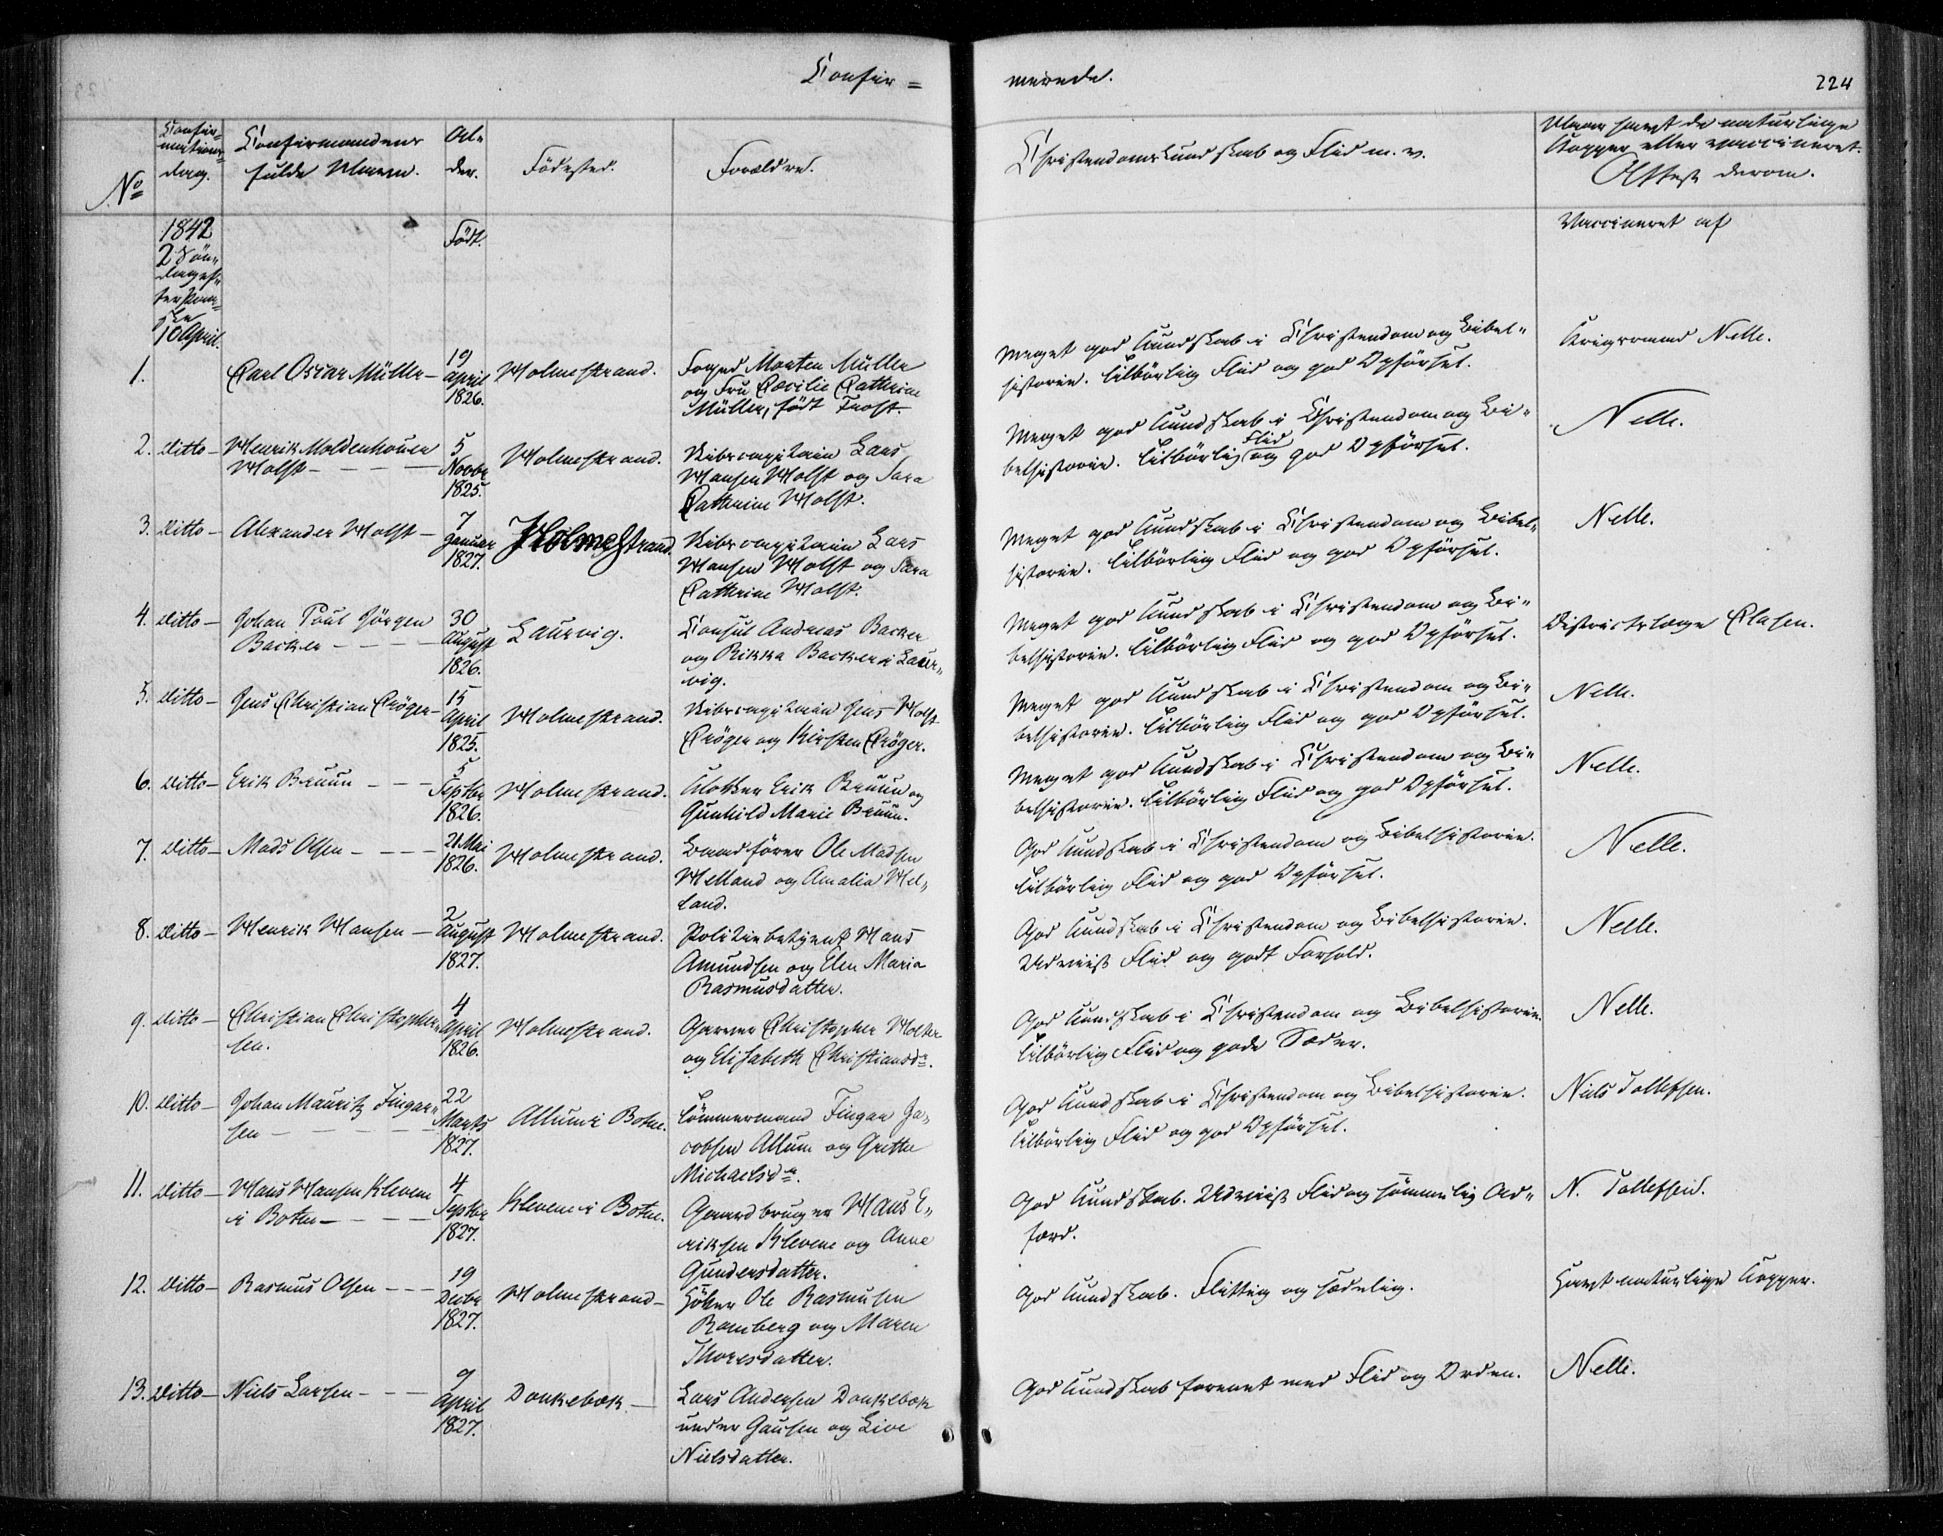 Confir=
merede.
224
No
Confir-
mations-
dag.
Confirmandens
fulde Navn.
Al-
der.
Födested.
Forældre.
Christendomskundskab og Flid m. v.
Naar havt de naturlige
Kopper eller vaccineret.
Attest derom.
1842
2 Sön-
dag ef-
ter Paa-
ske
10 April.
Födt.
Vaccineret af
1.
Carl Oscar Müller —
19
April
1826.
Holmestrand.
Foged Morten Müller
og Fru Cæcilie Cathrine
Müller, födt Frost.
Meget god Kundskab i Christendom og Bibel-
historien. Tilbörlig Flid og god Opförsel.
Nelle.
2. Ditto —
Henrik Moldenhauer
Holst — — — —
5
Novbr
1825.
Holmestrand.
Skibscapitain Lars
Hansen Holst og Sara
Cathrine Holst.
Meget god Kundskab i Christendom og Bi-
belhistorien. Tilbörlig Flid og god Opförsel.
Nelle.
3. Ditto —
Alexander Holst —
7
Januar
1827.
Holmestrand.
Skibscapitain Lars
Hansen Holst og Sara
Cathrine Holst.
Meget god Kundskab i Christendom og Bibel-
historien. Tilbörlig Flid og god Opförsel.
Nelle.
4. Ditto —
Johan Poul Jörgen
Backer — — — —
30
August
1826.
Laurvig.
Consul Andreas Backer
og Rikka Backer i Laur-
vig.
Meget god Kundskab i Christendom og Bi-
belhistorien. Tilbörlig Flid og god Opförsel.
Districtslæge Clasen.
5. Ditto —
Jens Christian Cröger —
15
April
1825.
Holmestrand.
Skibscapitain Jens Holst
Cröger og Kirsten Cröger.
Meget god Kundskab i Christendom og Bi-
belhistorien. Tilbörlig Flid og god Opförsel.
Nelle.
6. Ditto —
Erik Bruun — — —
5
Septbr
1826.
Holmestrand.
Klokker Erik Bruun og
Gunhild Marie Bruun.
Meget god Kundskab i Christendom og Bi-
belhistorien. Tilbörlig Flid og god Opförsel.
Nelle.
7. Ditto —
Mads Olsen — — — —
21 Mai
1826.
Holmestrand.
Baadförer Ole Madsen
Helland og Amalia Hel-
land.
God Kundskab i Christendom og Bibelhistorien.
Tilbörlig Flid og god Opförsel.
Nelle.
8. Ditto —
Henrik Hansen —
2
August
1827.
Holmestrand.
Politiebetjent Hans
Amundsen og Elen Maria
Rasmusdatter.
God Kundskab i Christendom og Bibelhistorien.
Udviist Flid og godt Forhold.
Nelle.
9. Ditto —
Christian Christopher-
sen.
4
April
1826.
Holmestrand.
Garver Christopher Holter
og Elisabeth Christiansdr.
God Kundskab i Christendom og Bibelhistorien.
Tilbörlig Flid og gode Sæder.
Nelle.
10. Ditto —
Johan Mauritz Fingar-
sen — — — — —
22
Marts
1827.
Allum i Botne.
Tömmermand Fingar Ja-
cobsen Allum og Grethe
Michaelsdr.
God Kundskab i Christendom og Bibelhistorien.
Tilbörlig Flid og god Opförsel.
Niels Tollefsen.
11. Ditto —
Hans Hansen Klevene
i Botne — — — —
4
Septbr
1827.
Klevene i Botne.
Gaardbruger Hans E-
riksen Klevene og Anne
Gundersdatter.
God Kundskab. Udviist Flid og sömmelig Ad-
færd.
N. Tollefsen.
12. Ditto —
Rasmus Olsen — — —
19
Decbr
1827.
Holmestrand —
Höker Ole Rasmusen
Ramberg og Maren
Thoresdatter.
God Kundskab. Flittig og sædelig.
Havt naturlige Kopper.
13. Ditto —
Niels Larsen — — —
9
April
1827.
Donkebæk —
Lars Andersen Donkebæk
under Gausen og Live
Nielsdatter.
God Kundskab forenet med Flid og Orden.
Nelle.